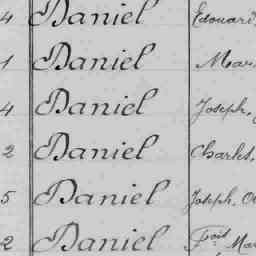 4 Daniel Edouard
1 Daniel Mar
4 Daniel Joseph,
2 Daniel Charles,
5 Daniel Joseph,
2 Daniel Fçois Mar